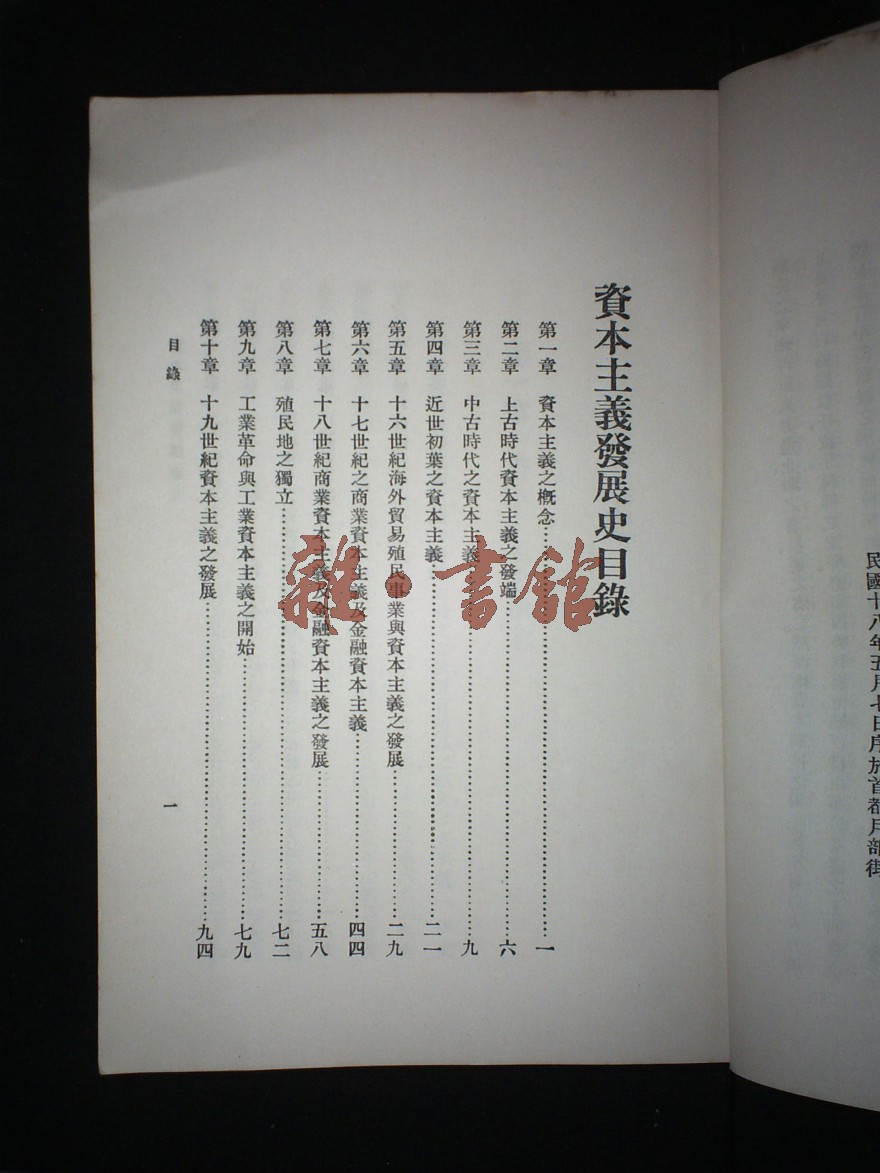 民國十八年五月七日序於首都月部街
資本主義發展史目錄
第一章 資本主義之概念……一
第二章 上古時代資本主義之發端……六
第三章 中古時代之資本主義……九
第四章 近世初葉之資本主義……二一
第五章 十六世紀海外貿易殖民事業與資本主義之發展……二九
第六章 十七世紀之商業資本主義及金融資本主義……四四
第七章 十八世紀商業資本主義及金融資本主義之發展……五八
第八章 殖民地之獨立……七二
第九章 工業革命與工業資本主義之開始……七九
第十章 十九世紀資本主義之發展……九四
目錄
一
雜·書館